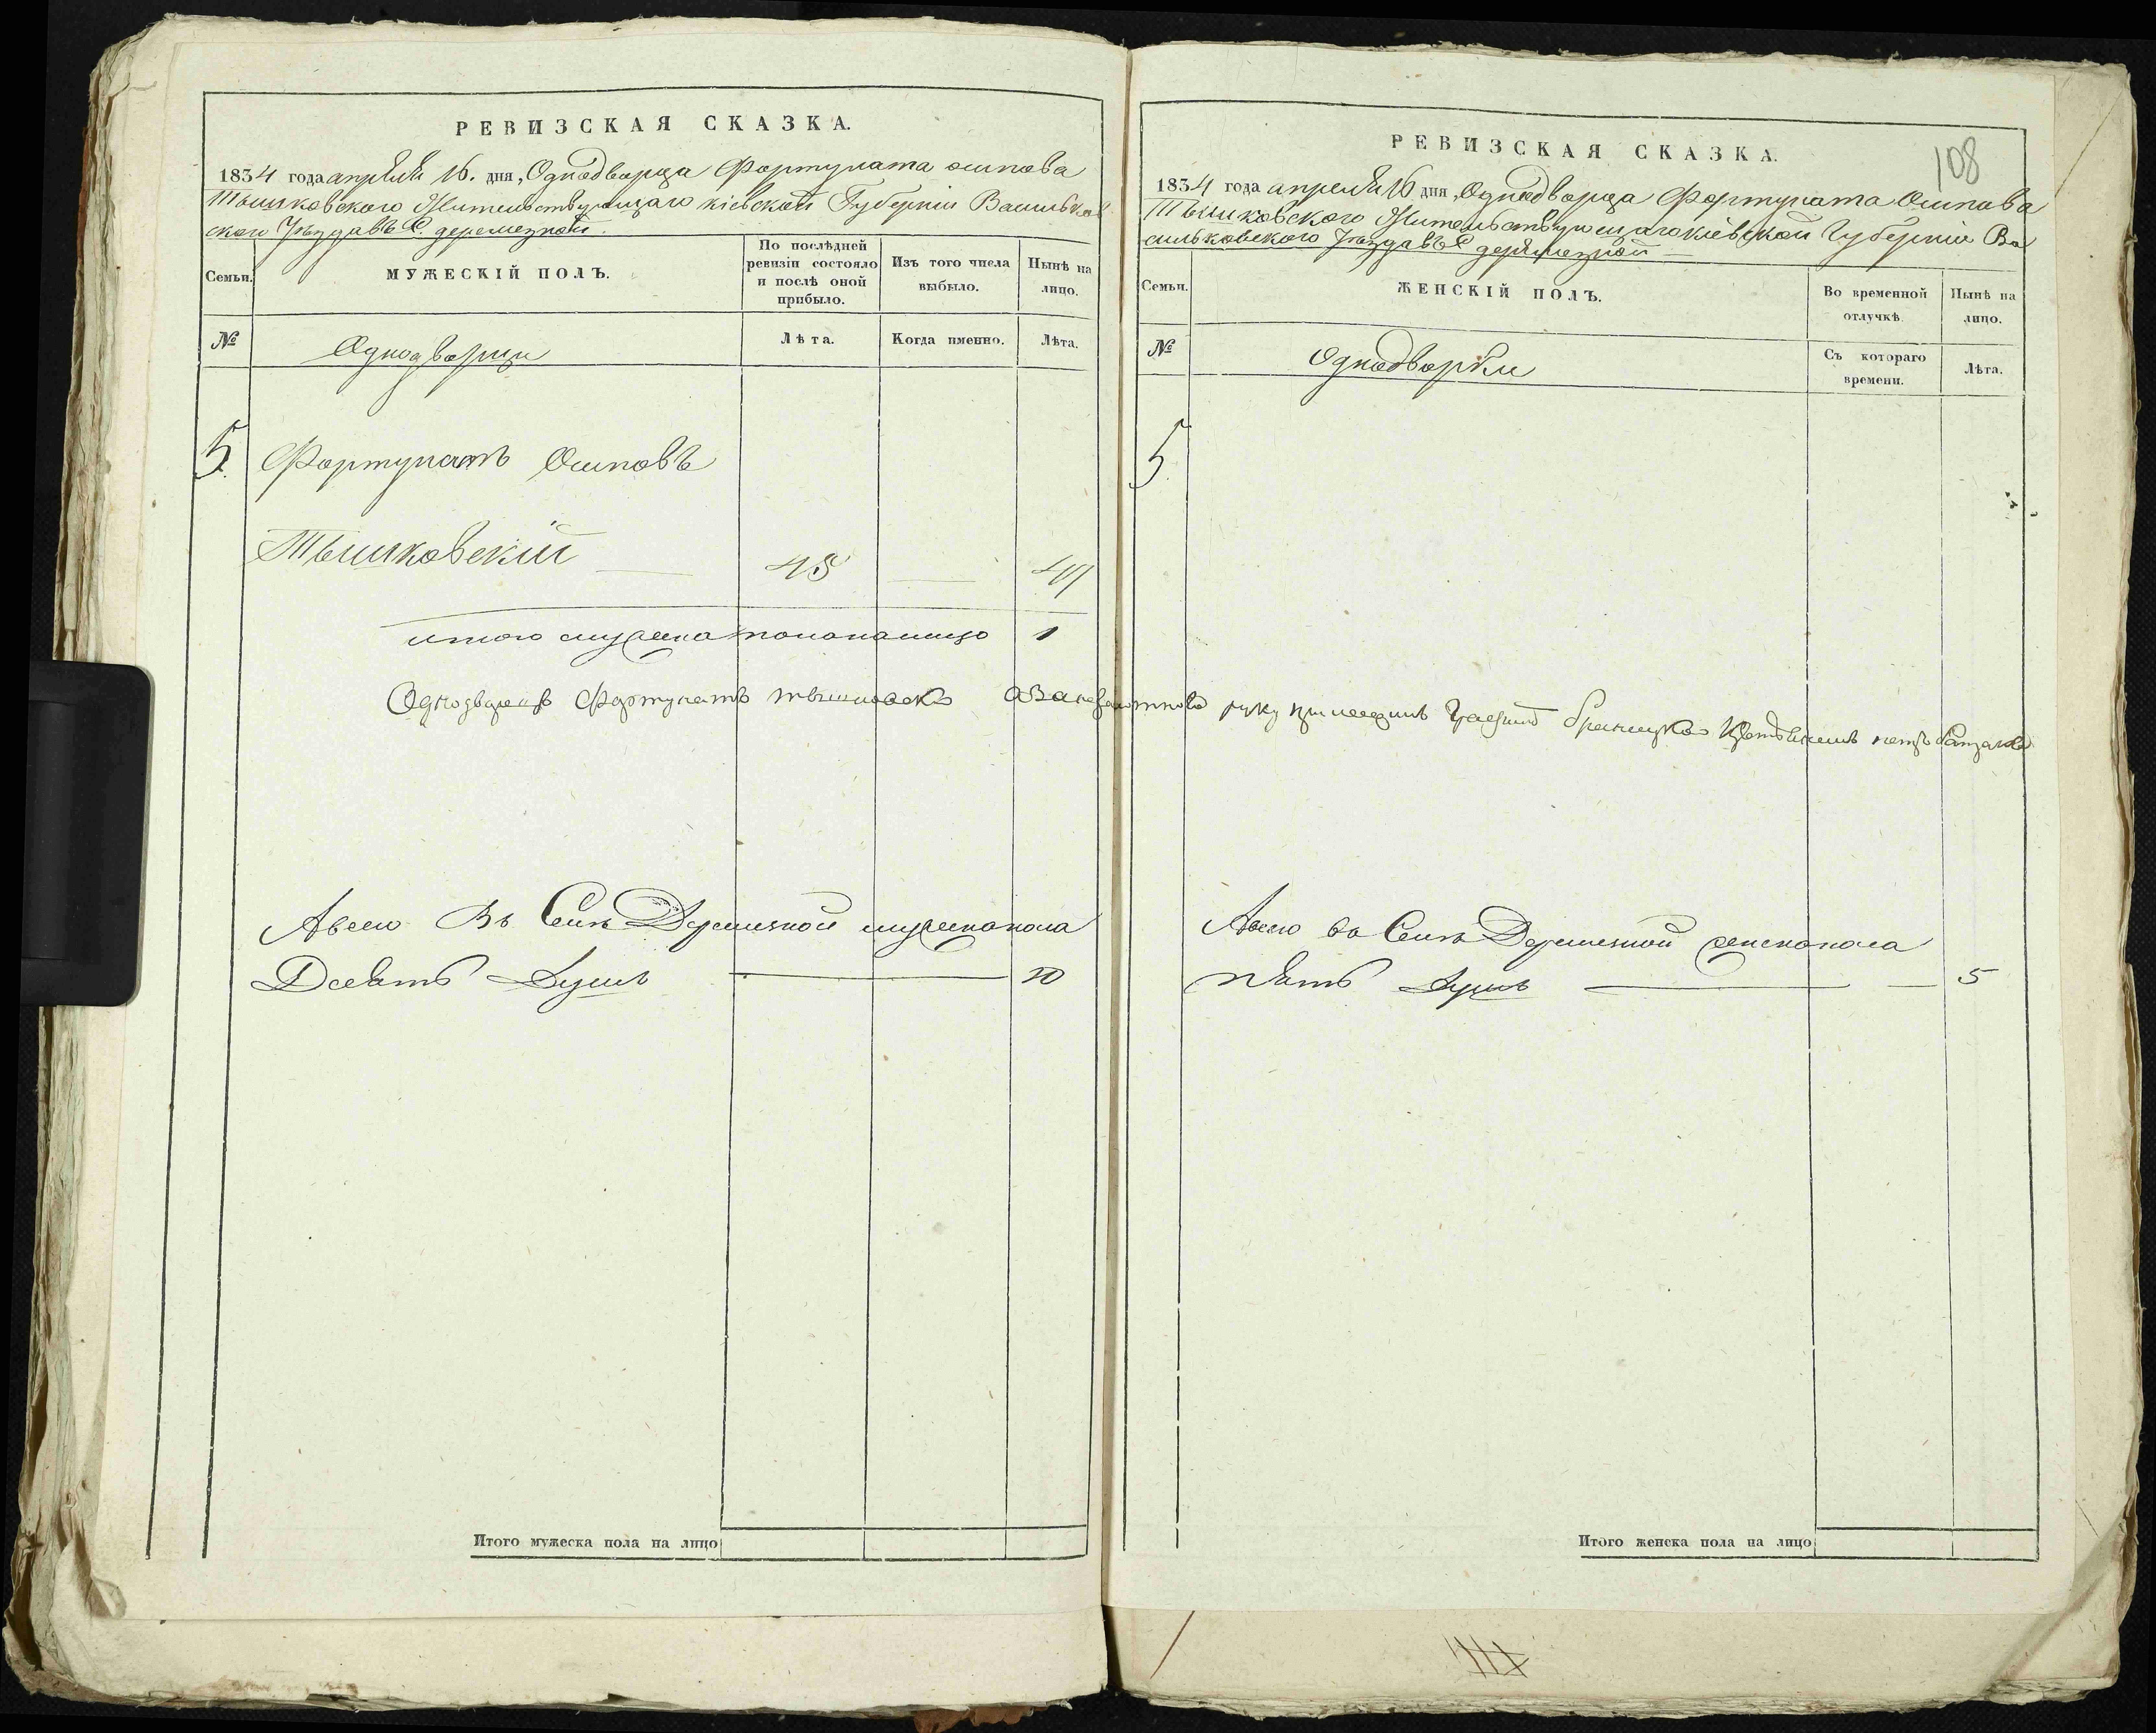 РЕВИЗСКАЯ СКАЗКА.
1834 года апреля 16. дня, Однодворца Фортуната осипова
Тышковского Жительствующаго кіевской Губерніи Васильков
ского Уезда въ С. деремезной.
Семьи.
МУЖЕСКІЙ ПОЛЪ.
По послѣдней ревизіи состояло и послѣ оной прибыло.
Изъ того числа выбыло.
Нынѣ на лицо.
№
Однодворцы
Лѣта.
Когда именно.
Лѣта.
5. Фортунатъ Осиповъ
Тышковскій
итого мужеска пола налицо 1
Однодворецъ Фортунатъ
Авсего Въ Селѣ Деремезной мужескапола
Десять Душъ 10
РЕВИЗСКАЯ СКАЗКА.
108
1834 года апреля 16 дня, Однодворца Фортуната Осипова
Тышковского Жительствующаго кіевской Губерніи Ва
сильковского Уезда въ С деремезной
Семьи.
ЖЕНСКІЙ ПОЛЪ.
Во временной отлучкѣ.
Нынѣ на лицо.
№
Однодворки
Съ котораго времени.
Лѣта.
5.
руку
Авсего во Селѣ Деремезной женскапола
пять Душъ 5
Итого мужеска пола на лицо
Итого женска пола на лицо